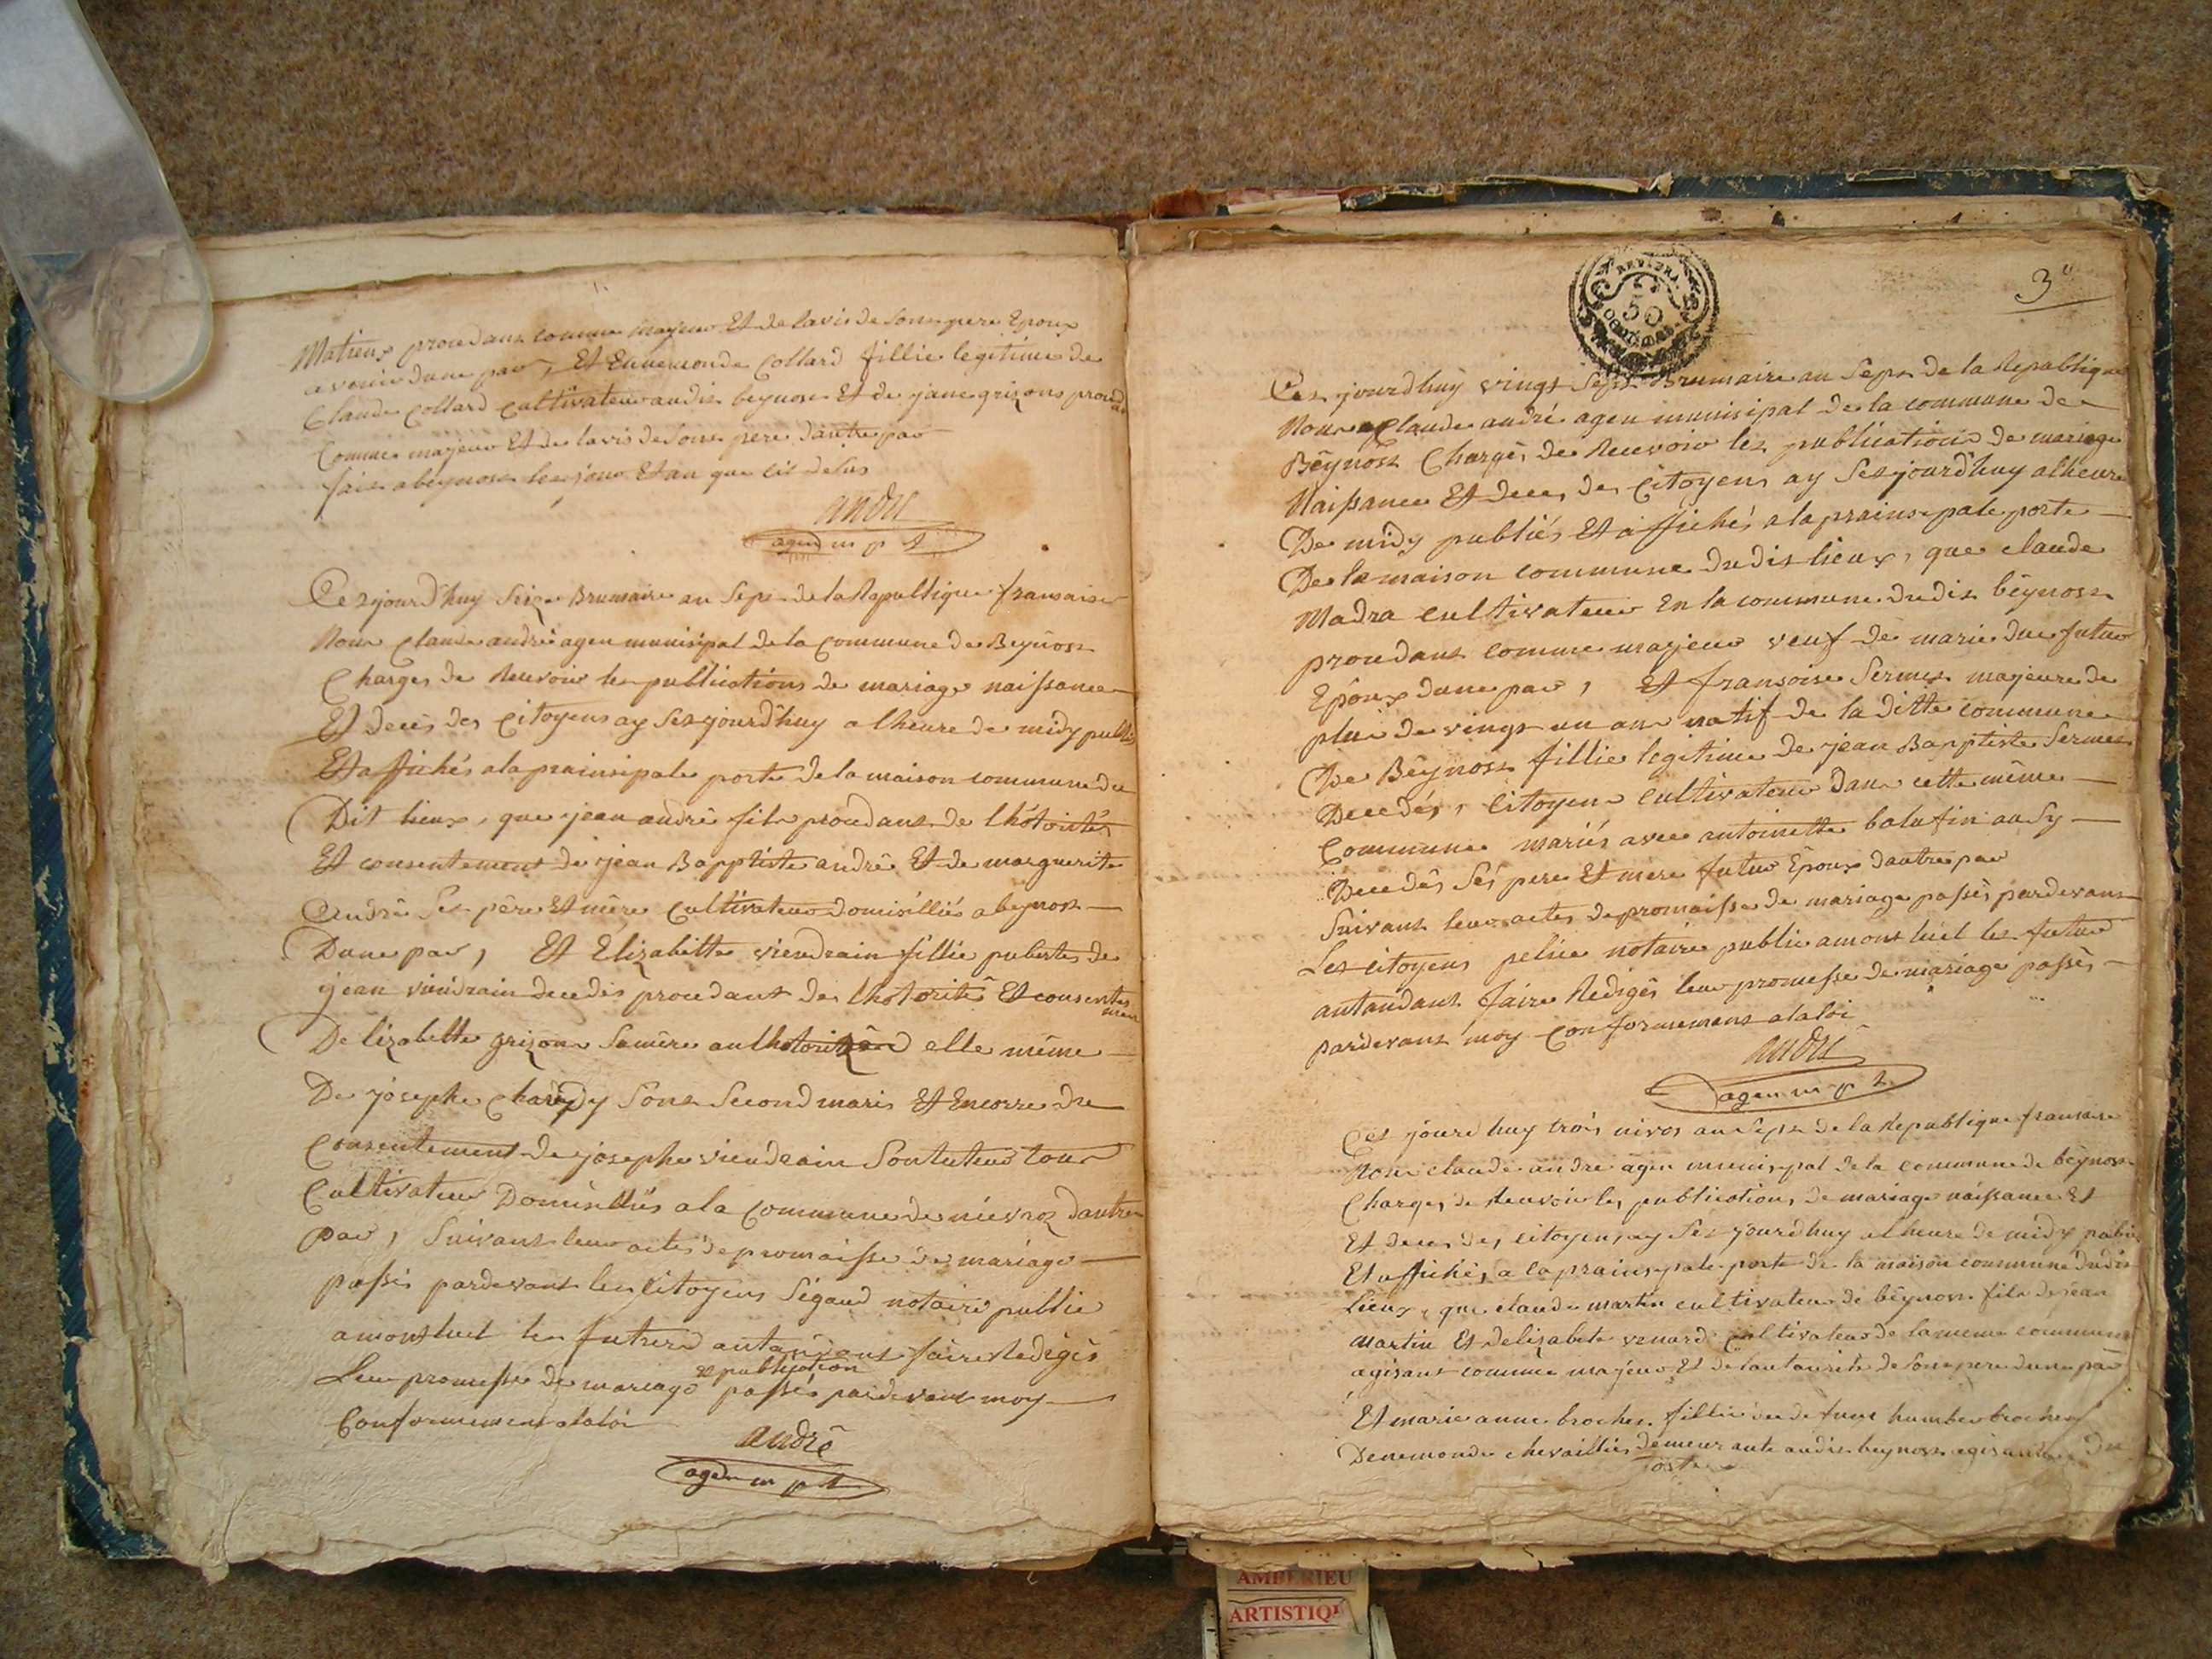 Matieux proudans comme majeur Et de lavis de son pere Epoux
avenir dune par, Et Ennemonde Collard fillie legitime de
Claude Collard Cultivateur audit beynost Et de jane grizons
Comme majeur Et de lavis de son pere dautre par
fait a beynost les jour Et an que cit desus
andre
agen m p l
Cezjourdhuy Seize Brumaire an Sept de la Republique fransaise
Nous Claude andré agen munisipal de la Commune de Beynost
Charges de Recevoir les publications de mariage naissance
Et decès des Citoyens ay Sezjourdhuy a lheure de midy publié
Et affichés a la prainsipale porte de la maison commune du
Dit lieux, que jean andré fils proudant de lhotorités
Et consentement de jean Bapptiste andré Et de marguerite
andré Ses père Et mère Cultivateur domisilliés a beynost
Dune par, Et Elizabette viendrain fillie pubertes de
jean viendrain decedés proudant de lhotorité Et consentemen
De lizabette grizon Samère elle même
De josephe Sont Second maris Et Encorre du
Consentement de josephe viendrain Sontuteur tous
Cultivateur Domisilliés a la Commune de nievroz dautre
par, Suivant leur actes de promaisse de mariage
passés pardevant les Citoyens Ségaud notaire public
a montluel les futurs antandant faire Redigés
Leur promesse de mariage et publication passés pardevant moy
Conformement alaloi
andré
agen m p l
REP. FRA.
50
CENTIMES
3
Cez jourdhuy vingt Sept Brumaire an Sept de la Republique
Nous Claude andré agen munisipal de la commune de
Beynost Chargés de Recevoir les publications de mariage
Naissance Et deces des Citoyens ay Sezjourdhuy alheure
De midy publiés Et affichés a la prainsepale porte
De la maison commune dudit lieux, que claude
Madra cultivateur En la commune dudit bèynost
proudant comme majeur veuf de marie due futur
Epoux dune par, Et fransoise Sermet majeure de
plus de vingt un an natif de la ditte commune
De Bèynost fillie legitime de jean Bapptiste Sermet
Decedés, Citoyens Cultivateur dans cette même
Commune mariés avec antoinette balufin ausy
Decedés Ses pere Et mère futur Epoux dautre par
Suivant leur actes de promaisse de mariage passés pardevant
Les citoyens notaire public amont luel les futur
antandant faire Redigés leur promesse de mariage passés
pardevant moy Conformement alaloi
andre
agen m p l
Cez jourdhuy trois nivos an Sept de la Republique fransaise
Nous claude andre agen munisipal de la commune de bèynost
Charges de Recevoir les publications de mariage naissance Et
Et deces des citoyens ay Sez jourdhuy alheure de midy publié
Et affichés a la prainsepale porte de la maison commune dudit
Lieux, que claude martin cultivateur de bèynost fils de jean
martin Et delizabete venard cultivateur de la meme commune
agisant comme majeur Et de lautaurité de son pere dune par
Et marie anne brochet fillie de humber brochet
Denemonde chevaillier demeurante audit beynost agisante de